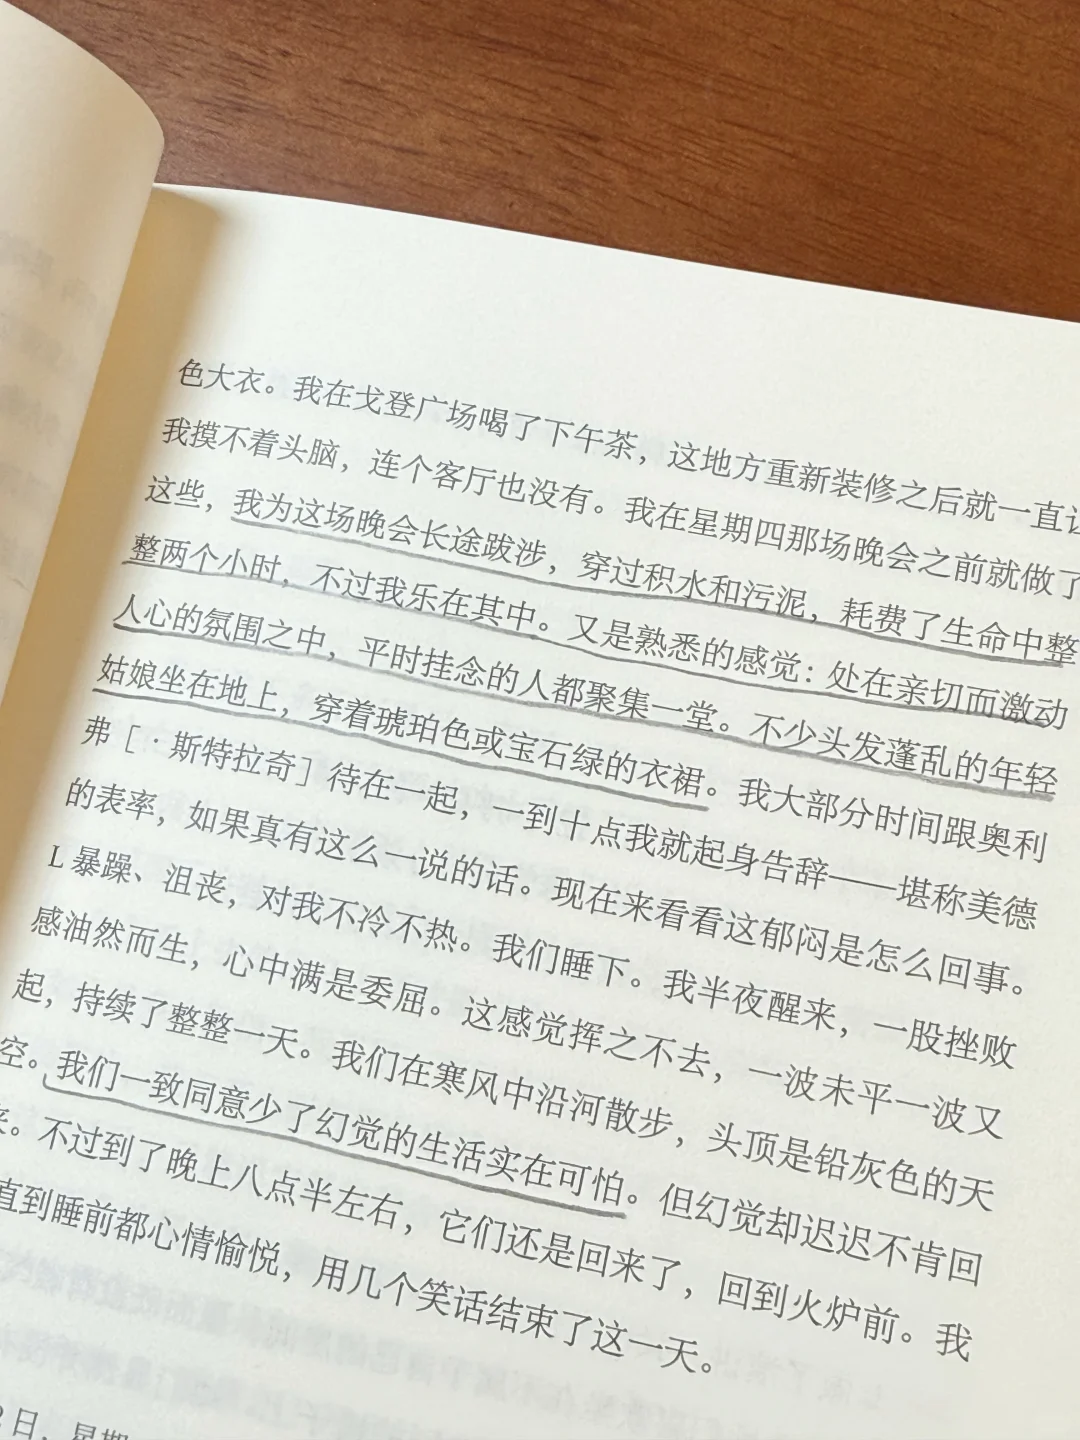 色大衣。我在戈登广场喝了下午茶，这地方重新装修之后就一直让
我摸不着头脑，连个客厅也没有。我在星期四那场晚会之前就做了
这些，我为这场晚会长途跋涉，穿过积水和污泥，耗费了生命中整
整两个小时，不过我乐在其中。又是熟悉的感觉：处在亲切而激动
人心的氛围之中，平时挂念的人都聚集一堂。不少头发蓬乱的年轻
姑娘坐在地上，穿着琥珀色或宝石绿的衣裙。我大部分时间跟奥利
弗［·斯特拉奇］待在一起，一到十点我就起身告辞——堪称美德
的表率，如果真有这么一说的话。现在来看看这郁闷是怎么回事。
L 暴躁、沮丧，对我不冷不热。我们睡下。我半夜醒来，一股挫败
感油然而生，心中满是委屈。这感觉挥之不去，一波未平一波又
起，持续了整整一天。我们在寒风中沿河散步，头顶是铅灰色的天
空。我们一致同意少了幻觉的生活实在可怕。但幻觉却迟迟不肯回
来。不过到了晚上八点半左右，它们还是回来了，回到火炉前。我
直到睡前都心情愉悦，用几个笑话结束了这一天。
2日，星期